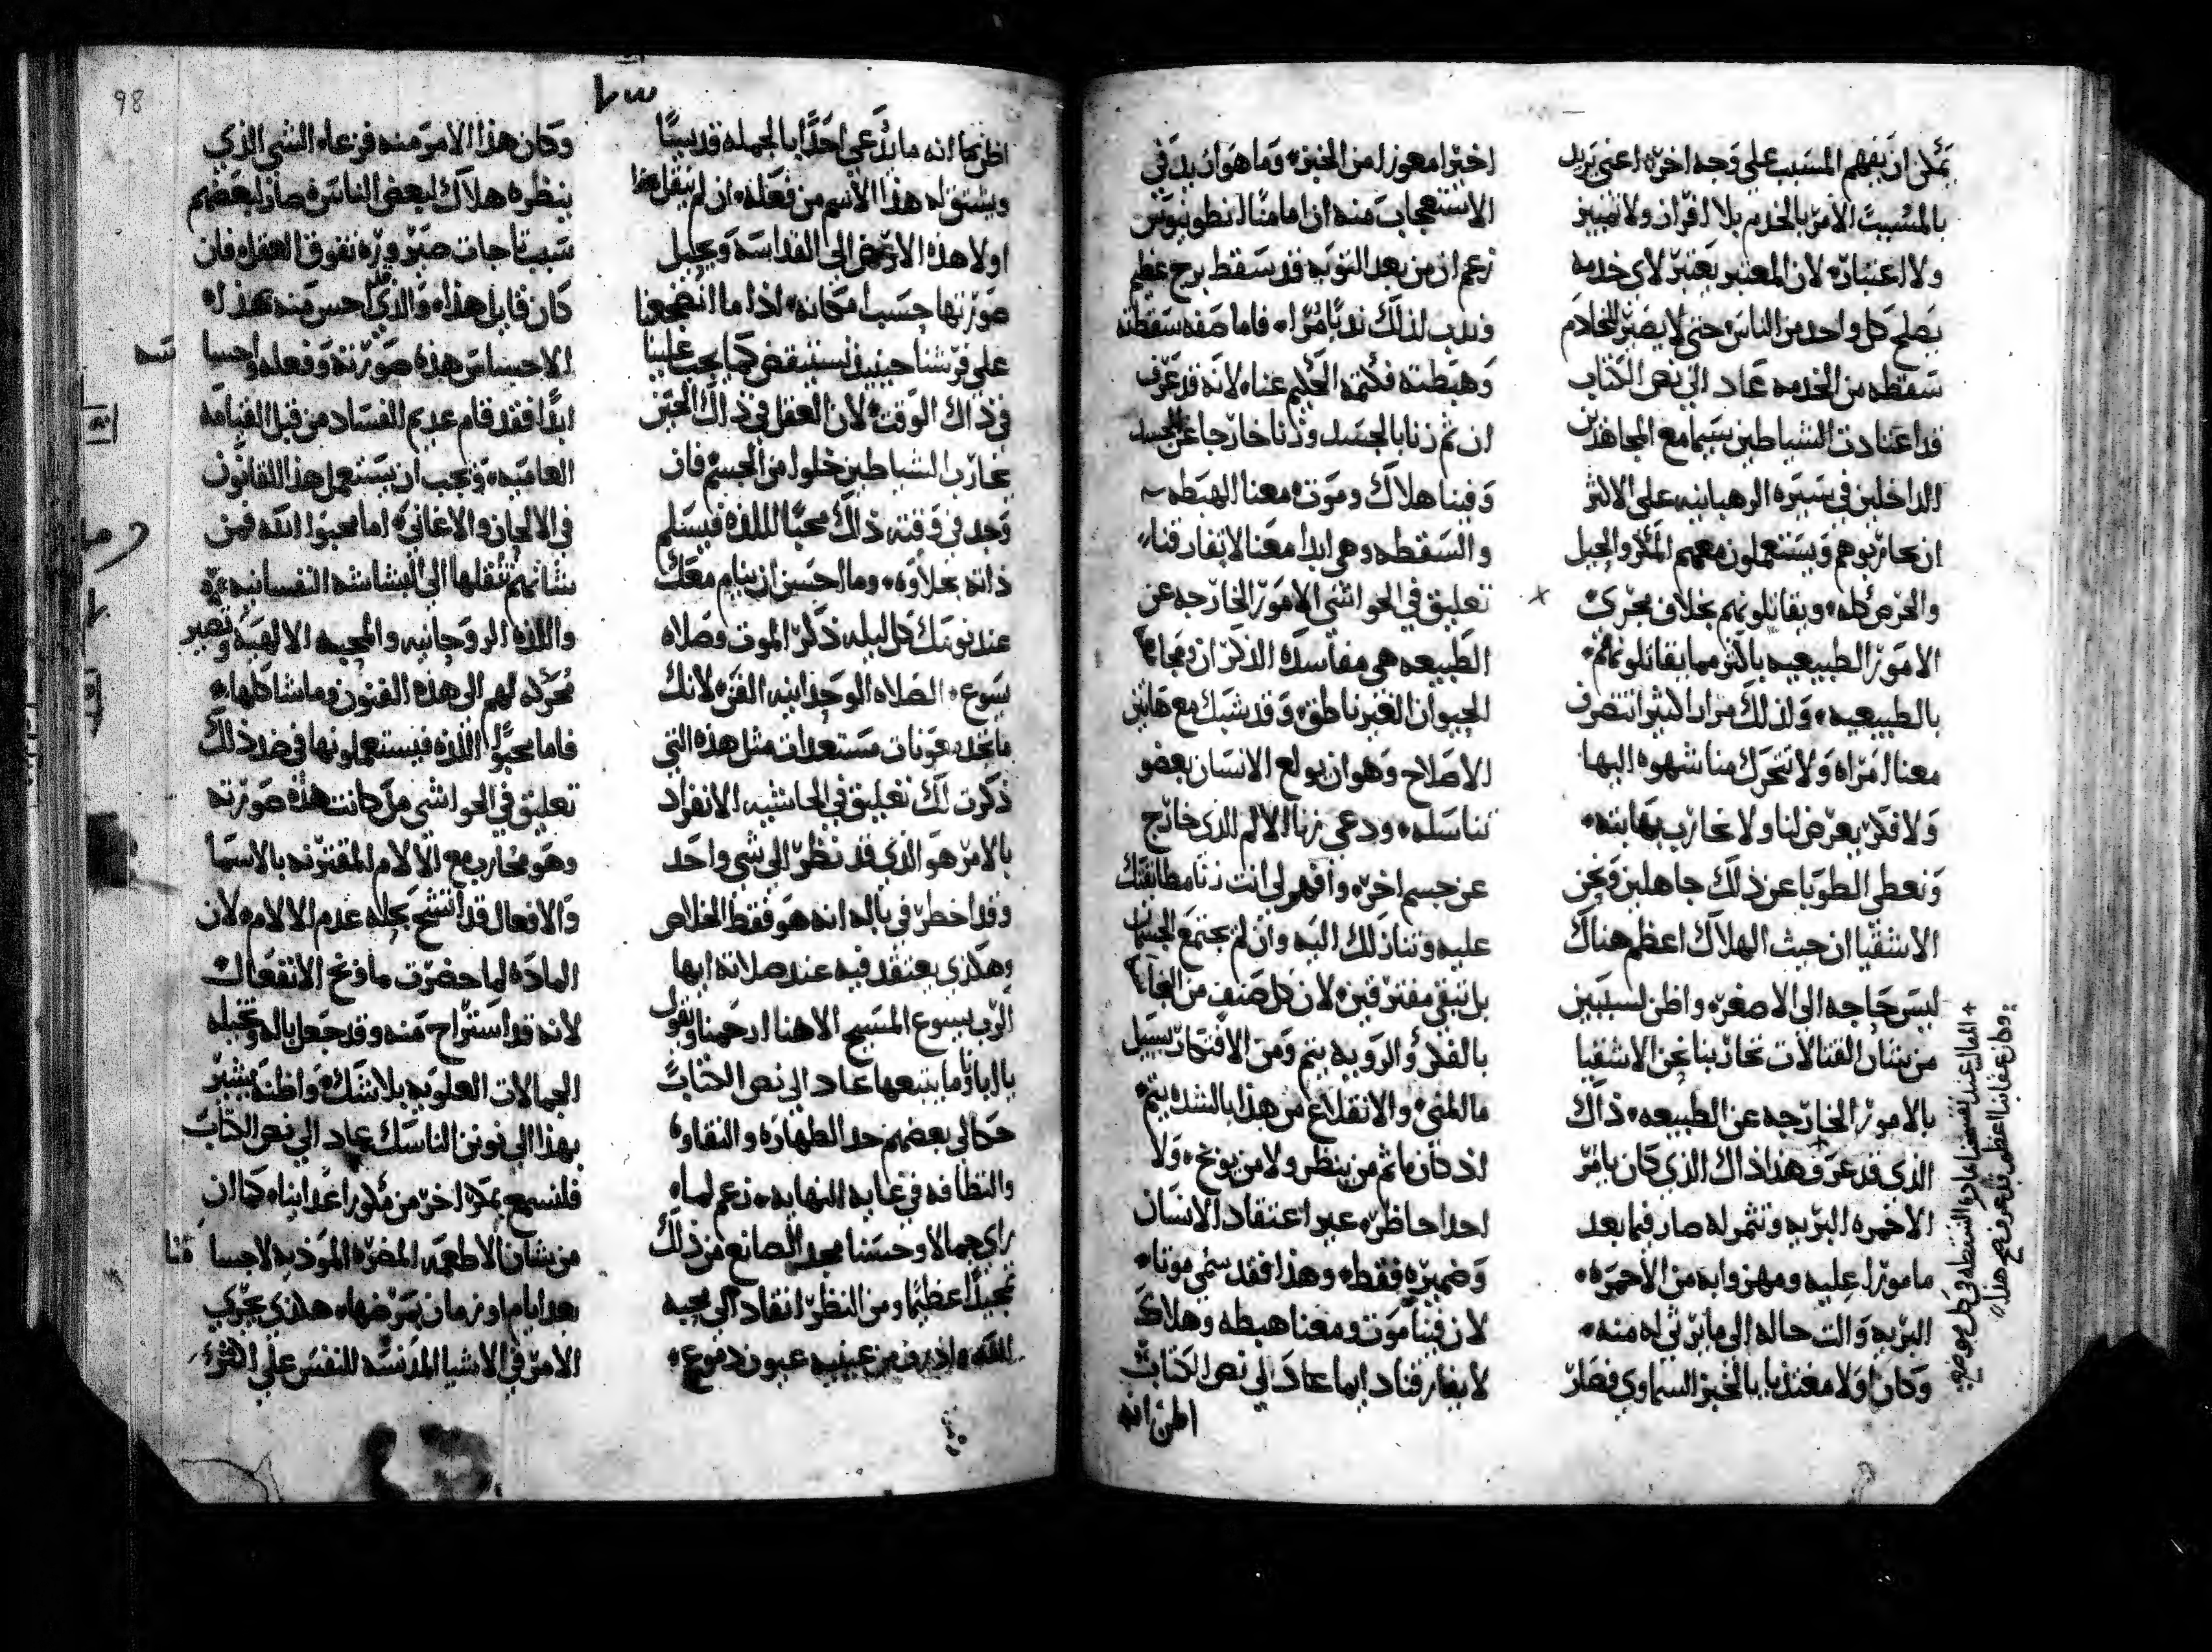 يمكن ان يفهم المسبب علي وجه اخر، اعني يريد
بالمسبب الامر بالخدم بلا افراز ولا تمييز
ولا اعتبار، لان المعتبر يعتبر لاي خدمه
يصلح كل واحد من الناس حتي لا يصير للخادم
سقطه من الخدمه عاد الي نص الكتاب
قد اعتادت الشياطين سيما مع المجاهدين
الداخلين في سيره الرهبانيه علي الاكثر
ان يحاربوهم ويستعملون معهم المكر والحيل
والحرص كله، ويقاتلونهم بخلاف مجري
الامور الطبيعيه باكثر مما يقاتلونهم
بالطبيعيه، ولذلك مرار اكثر انتصرف
معنا المراه ولا تتحرك منا شهوه اليها
ولا فكر يعرض لنا ولا نحارب بهابته،
ونعطي الطوبا عن ذلك جاهلين ونحن
الاشقيا ان حيث الهلاك اعظم هناك
ليس حاجه الي الاصغر، واظن لسببين
من شان القتالات تحاربنا نحن الاشقيا
بالامور الخارجه عن الطبيعه، ذاك
الذي قد عرف وهذا ذاك الذي كان يامر
الاخمره البريه وتثمر له صار فيما بعد
مامورا عليه ومهزوا به من الاحمره،
البريه والت حاله الي ما يرثي له منه،
وكان اولا مغتديا بالخبز السماوي فصار
+ المال عند تصنعنا مادة السقطه في كل موضع
وكان عقابنا اعظم قد عرف مع هذا
اخيرا معوزا من الخبز، وما هو ان بد في
الاستعجاب منه ان امامنا انطونيوس
زعم ان من بعد التوبه قد سقط برج عظيم
وندب لذلك ندبا مرا، فاما صفه سقطته
وهبطته فكتمه الحكيم عنا، لانه قد عرف
ان ثم زنا بالجسد وزنا خارجا عن الجسد
وفينا هلاك وموت معنا الهبطه
والسقطه وهي ابدا معنا لا تفارقنا
تعليق في الحواشي الامور الخارجه عن
الطبيعه هي مفاسدة الذكران ومجامعة
الحيوان الغير ناطق، وقد شبك مع هاتين
الاصلاح وهو ان يولع الانسان بعضو
تناسله، ودعي زنا الالم الذي خارج
عن جسم اخر، وافهم لي انت زنا مطابقتك
عليه وتنازلك اليه وان لم يجتمع الجسمان
بل تبقي مفترقين، لان كل صنف من
بالفكر والرويه يتم ومن الافتكار يسيل
ما المني، والانقلاع من هذا بالشده يتم
اذ كان ما ثم من ينظر ولا من يوبخ، ولا
احدا حاظر، غير اعتقاد الانسان
وضميره فقط، وهذا فقد سمي موتا،
لان فينا موت ومعنا هبطه وهلاك
لا يفارقنا دايما عاد الي نص الكتاب
اظن انه
٩٣
اظن بما انه ما يدعي احدا بالجمله قديسا
ويشتق له هذا الاسم من فعله، ان لم ينقل هذا
اولا هذه الارض الي القداسه ويحيل
صورتها حسب امكانه، اذا ما انضجعنا
علي فرشنا حينيذ نستيقض كما يجب علينا
في ذاك الوقت، لان العقل في ذاك الحين
يحارب الشياطين خلوا من الجسم فان
وجد في وقته ذاك محبا للذه فيسلم
ذاته بحلاوه، وما احسن ان ينام معك
عند نومك كل ليله ذكر الموت وصلاه
يسوع، الصلاه الوحدانيه الفن، لانك
ما تجد معونات مستعدات مثل هذه التي
ذكرت لك تعليق في الحاشيه الانفراد
بالامر هو الذي قد نظر الي شي واحد
وقد اخطر في باله انه هو فقط الخلاص
وهكذي يعتقد فيه عند صلاته ايها
الرب يسوع المسيح الاهنا ارحمنا ويقول
يا ابانا وما يتبعها عاد الي نص الكتاب
حكالي بعضهم حد الطهاره والنقاوه
والنظافه في غايه النهايه، زعم لما
راي جمالا وحسنا مجد الصانع من ذلك
تمجيدا عظيما ومن النظر انقاد الي محبه
الله، واذرف من عينيه عيون دموع،
98
وكان هذا الامر منه فزعا، الشي الذي
ينظره هلاك لبعض الناس، صار لبعضهم
سبب تاجات صبر وره تفوق العقل، فان
كان قايل هذا، والذي قد احس منه هذا له
الاحساس هذه صورته وفعله واحسا
ابدا فقد قام عديم الفساد من قبل القيامه
العاميه، ويجب ان يستعمل هذا القانون
في الالحان والاغاني، اما محبوا الله فمن
شانهم تنقلها الي البشاشه النفسانيه،
واللذه الروحانيه والمحبه الالهيه وتصير
محركه لهم الي هذه الفنون وما شاكلها،
فاما محبوا اللذه فيستعملونها في ضد ذلك
تعليق في الحواشي من كانت هذه صورته
وهو محارب مع الالام المقترنه بالاسما
والافعال قد انتشح بحله عدم الالام، لان
الماده لما حضرت ما ونخ الانفعال
لانه قد استراح منه وقد جعل باله وتخيله
الجمالات العلويه بلا شك، واظنه يشير
بهذا الي نونن الناسك عاد الي نص الكتاب
فلنسمع بمكر اخر من مكور اعداينا، كما ان
من شان الاطعمه المضره الموذيه لاجسامنا
بعد ايام او زمان تمرضها، هكذي يجري
الامر في الاشيا المدنسه للنفس علي الاكثر